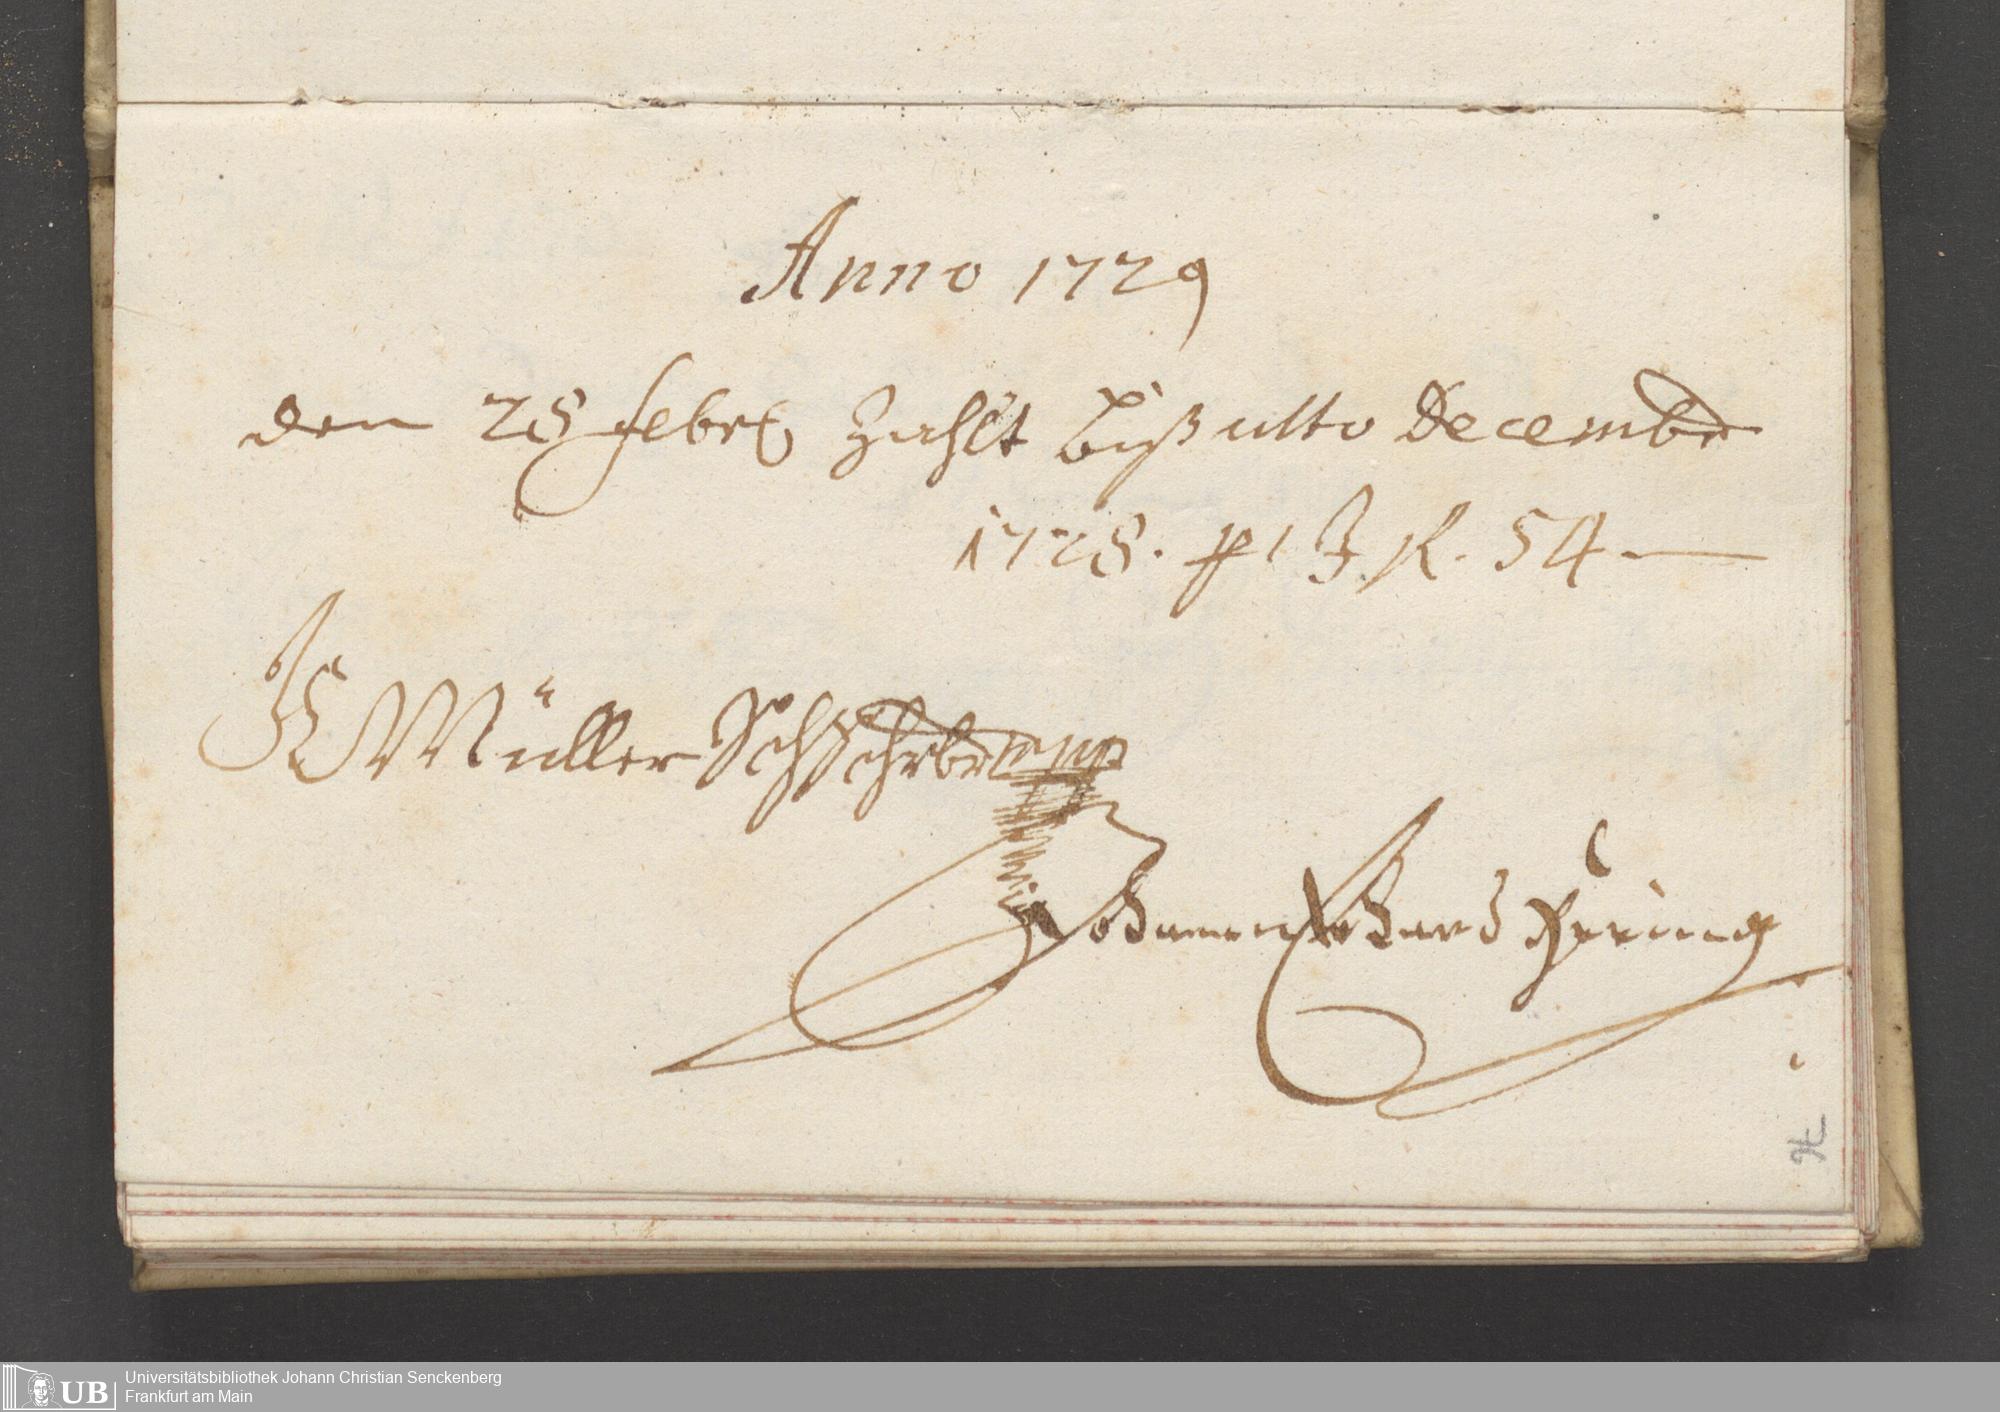 Anno 1729
den 28 febr Zahlt biß ulto Decembr
1728. # 1 J. R. 54
Müller
Johann
UB Universitätsbibliothek Johann Christian Senckenberg
Frankfurt am Main